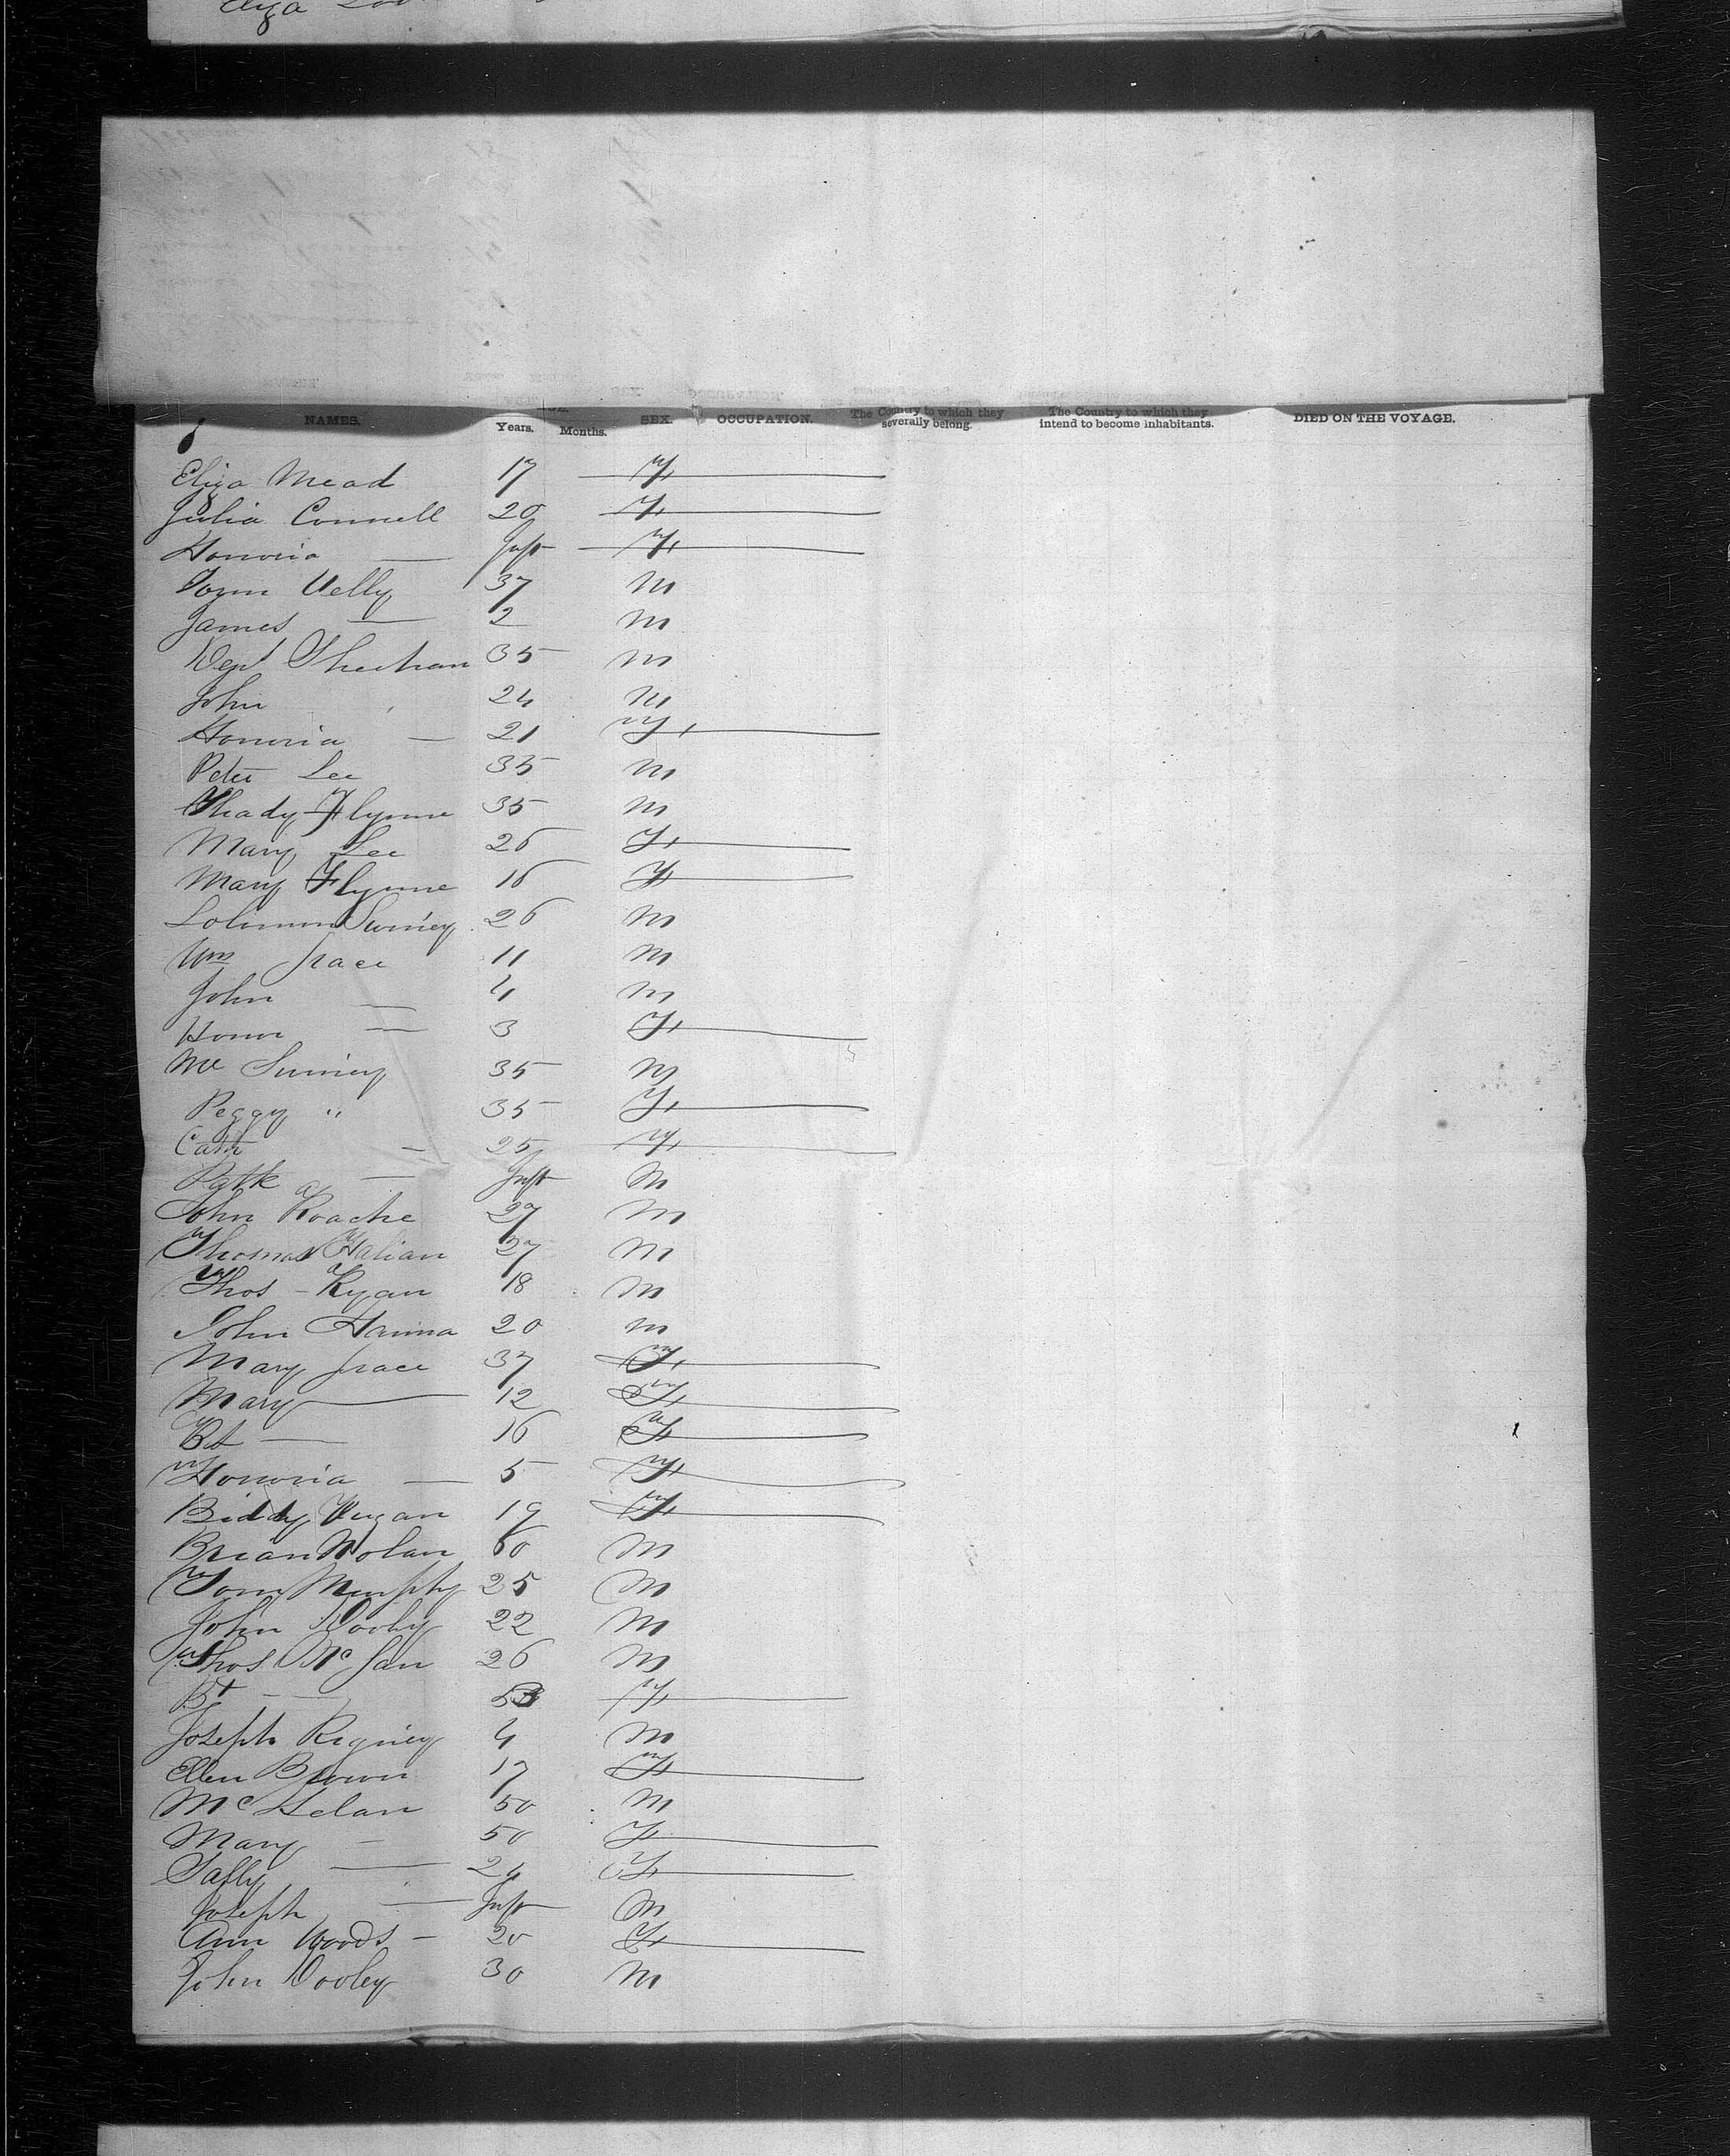 Eliza
NAMES. Years. Months. SEX. OCCUPATION. The Country to which they severally belong. The Country to which they intend to become inhabitants. DIED ON THE VOYAGE.
Eliza Mead 17 F
Julia Connell 20 F
Honoria — Inft F
37 M
James — 2 M
Sheehan 35 M
John 24 M
Honoria — 21 F
Peter Lee 35 M
Thady Flynne 35 M
Mary Lee 26 F
Mary Flynne 16 F
26 M
Wm Grace 11 M
John — 4 M
Honor — 3 F
35 M
Peggy " 35 F
Cath — 25 F
Patk — Inft M
John Roache 27 M
Thomas 27 M
Thos - Ryan 18 M
John Hanna 20 M
Mary Grace 37 F
Mary — 12 F
Bt — 16 F
Honoria — 5 F
Biddy 19 F
Brian Nolan 60 M
Tom Murphy 25 M
John Dooly 22 M
Thos Mc 26 M
Bt — F
Joseph Rigney 4 M
Ellen Brown 17 F
Mc Helan 50 M
Mary — 50 F
Sally — 24 F
Joseph — Inft M
Ann Woods — 20 F
John Dooley 30 M